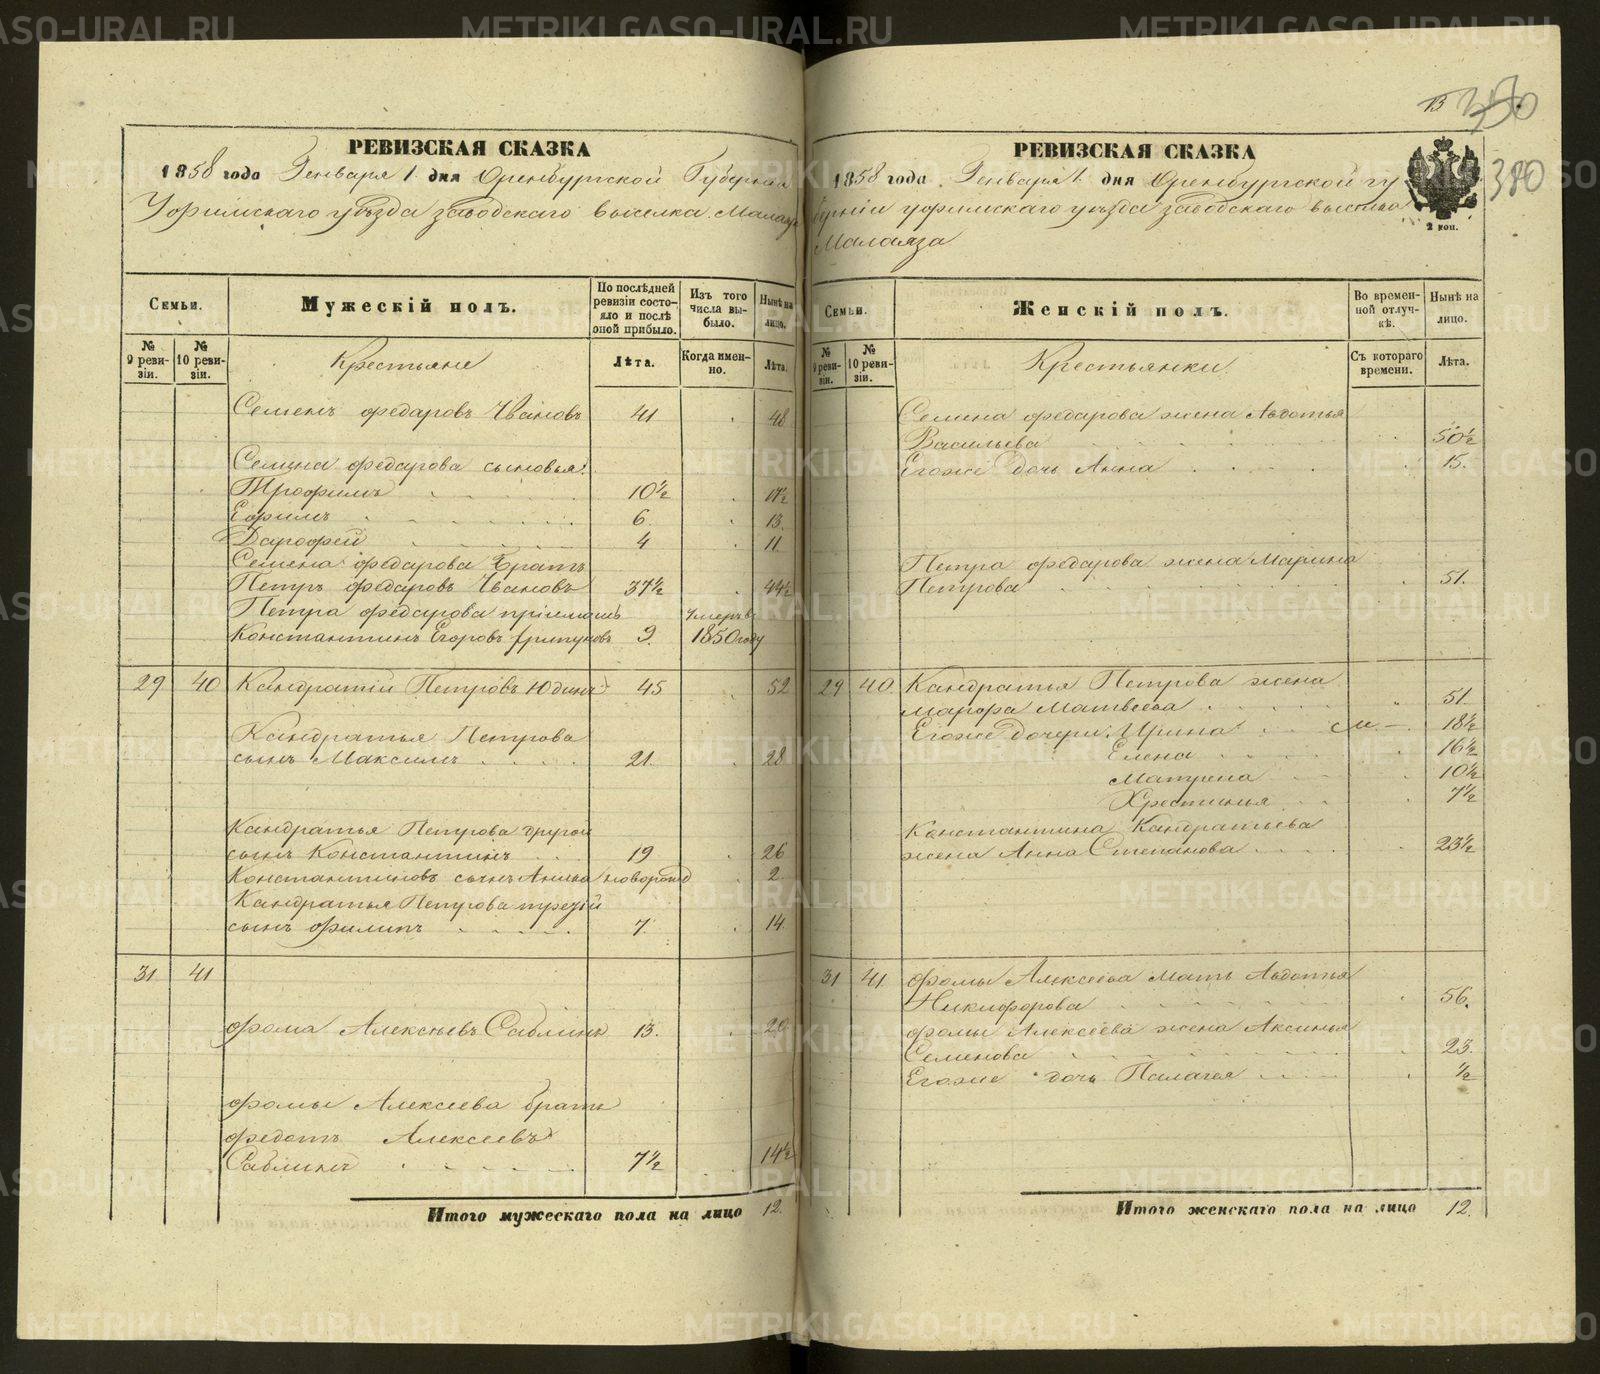 13 350
380
РЕВИЗСКАЯ СКАЗКА
1858 года Генваря 1 дня Оренбургской Губерніи
Уфимскаго уѣзда заводскаго выселка Малаяза
Семьи.
Мужескій полъ.
По послѣдней ревизіи состояло и послѣ оной прибыло.
Изъ того числа выбыло.
Нынѣ на лицо.
№ 9 ревизіи.
№ 10 ревизіи.
Крестьяне
Лѣта.
Когда именно.
Лѣта.
Семенъ Федаровъ Ивановъ 41 48
Семена Федарова сыновья:
Трофимъ 10½ 17½
Ефимъ 6 13.
Дарофей 4 11
Семена Федарова братъ
Петръ Федаровъ Ивановъ 37½ 44½
Петра Федарова пріемышъ умеръ въ
Константинъ Егоровъ 9. 1850 году
29 40 Кандратій Петровъ Юдинъ 45 52
Кандратья Петрова
сынъ Максимъ 21 28
Кандратья Петрова другой
сынъ Константинъ 19 26
Константиновъ сынъ новорожд 2.
Кандратья Петрова третій
сынъ Филипъ 7 14
31 41
Фома Алексѣевъ Саблинъ 13. 20
Фомы Алексеева братъ
Федотъ Алексеевъ
Саблинъ 7½ 14½
Итого мужескаго пола на лицо 12.
РЕВИЗСКАЯ СКАЗКА
1858 года Генваря 1 дня Оренбургской гу
берніи уфимскаго уѣзда заводскаго выселка
Малаяза
2 коп.
Семьи.
Женскій полъ.
Во временной отлучкѣ.
Нынѣ на лицо.
№ 9 ревизіи.
№ 10 ревизіи.
Крестьянки
Съ котораго времени.
Лѣта.
Семена Федарова жена Авдотья
Васильева 50½
Егоже дочь Анна 15.
Петра Федарова жена Марина
Петрова 51.
29 40 Кандратья Петрова жена
Марфа Матвеева 51
Егоже дочери Ирина 18½
Елена 16½
Матрена 10½
Хрестинья 7½
Константина Кандратьева
жена Анна Степанова 23½
31 41 Фомы Алексеева мать Авдотья
Никифорова 56.
Фомы Алексеева жена Аксинья
Семенова 23.
Егоже дочь Палагея ½
Итого женскаго пола на лицо 12.
METRIKI.GASO-URAL.RU